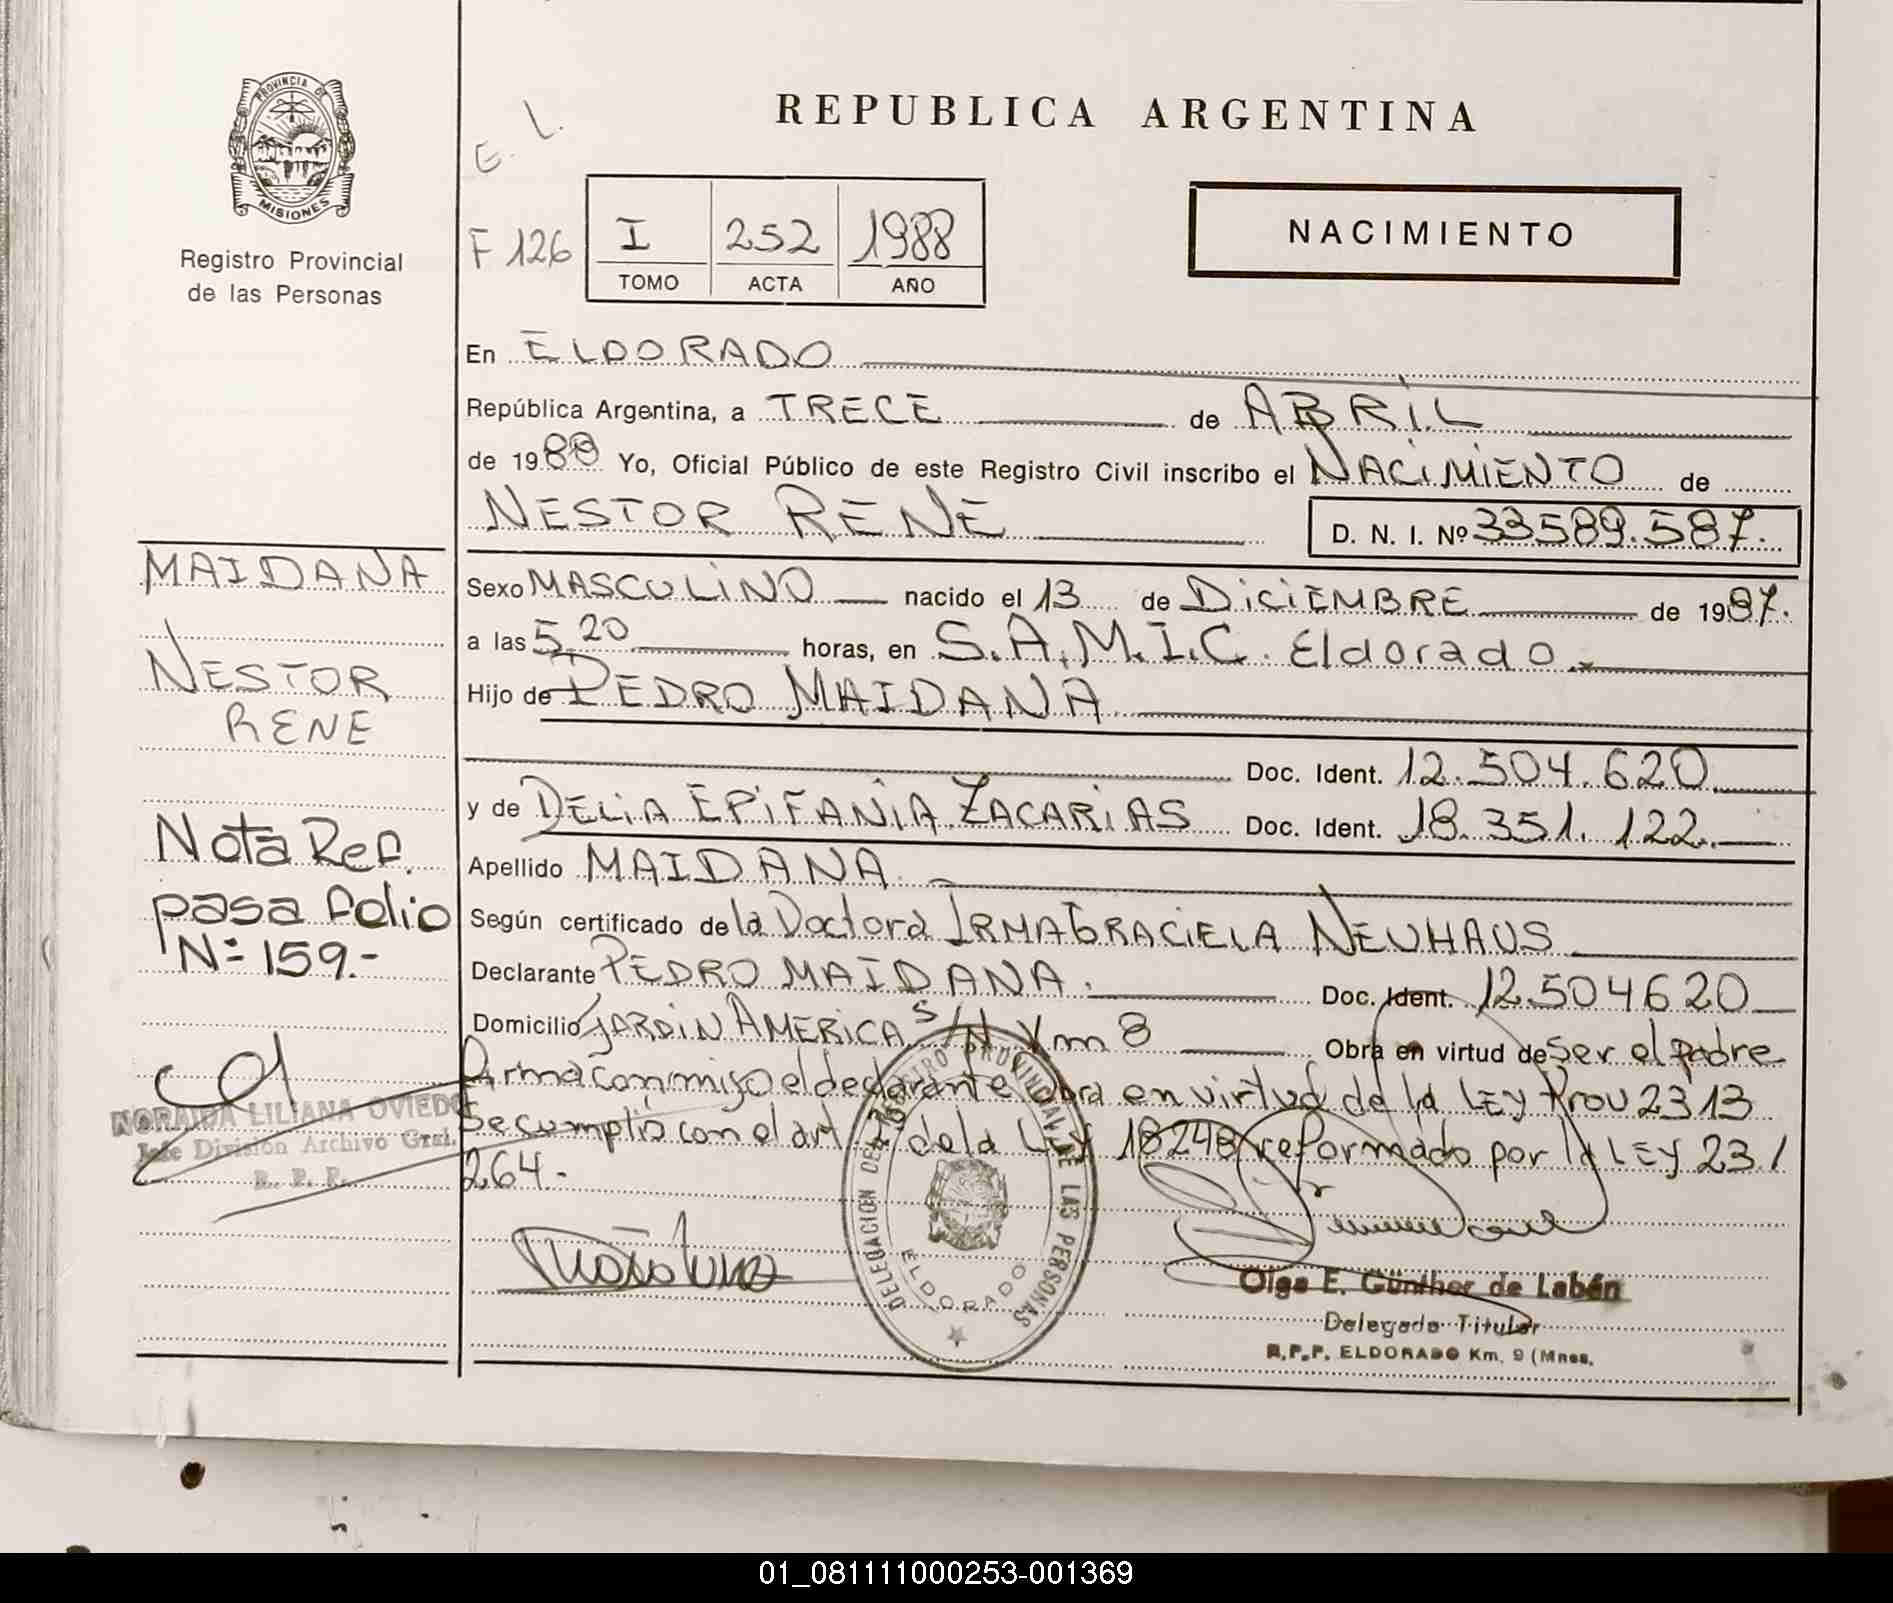 REPUBLICA ARGENTINA
PROVINCIA DE
MISIONES
Registro Provincial
de las Personas
E. L.
F 126
I 252 1988
TOMO ACTA AÑO
NACIMIENTO
En ELDORADO
República Argentina, a TRECE de ABRIL
de 1988 Yo, Oficial Público de este Registro Civil inscribo el NACIMIENTO de
NESTOR RENE D. N. I. Nº 33589.587.
MAIDANA
NESTOR
RENE
Sexo MASCULINO nacido el 13 de DICIEMBRE de 1987.
a las 5,20 horas, en S.A.M.I.C. Eldorado.
Hijo de PEDRO MAIDANA
Doc. Ident. 12.504.620
y de DELIA EPIFANIA ZACARIAS Doc. Ident. 18.351.122.
Apellido MAIDANA
Según certificado de la Doctora IRMA GRACIELA NEUHAUS
Declarante PEDRO MAIDANA. Doc. Ident. 12.504620
Domicilio JARDIN AMERICA S/N Km 8 Obra en virtud de Ser el padre
Firma conmigo el declarante Obra en virtud de la LEY Prov 2313
Se cumplió con el art de la LEY 18248 reformado por la LEY 23/
264.-
Nota Ref.
pasa folio
Nº 159.-
NORAIDA LILIANA OVIEDO
Jefe División Archivo Gral.
R. P. P.
DELEGACION DEL REGISTRO PROVINCIAL DE LAS PERSONAS
ELDORADO
Olga E. Günther de Labán
Delegada Titular
R.P.P. ELDORADO Km. 9 (Mnes.
01_081111000253-001369